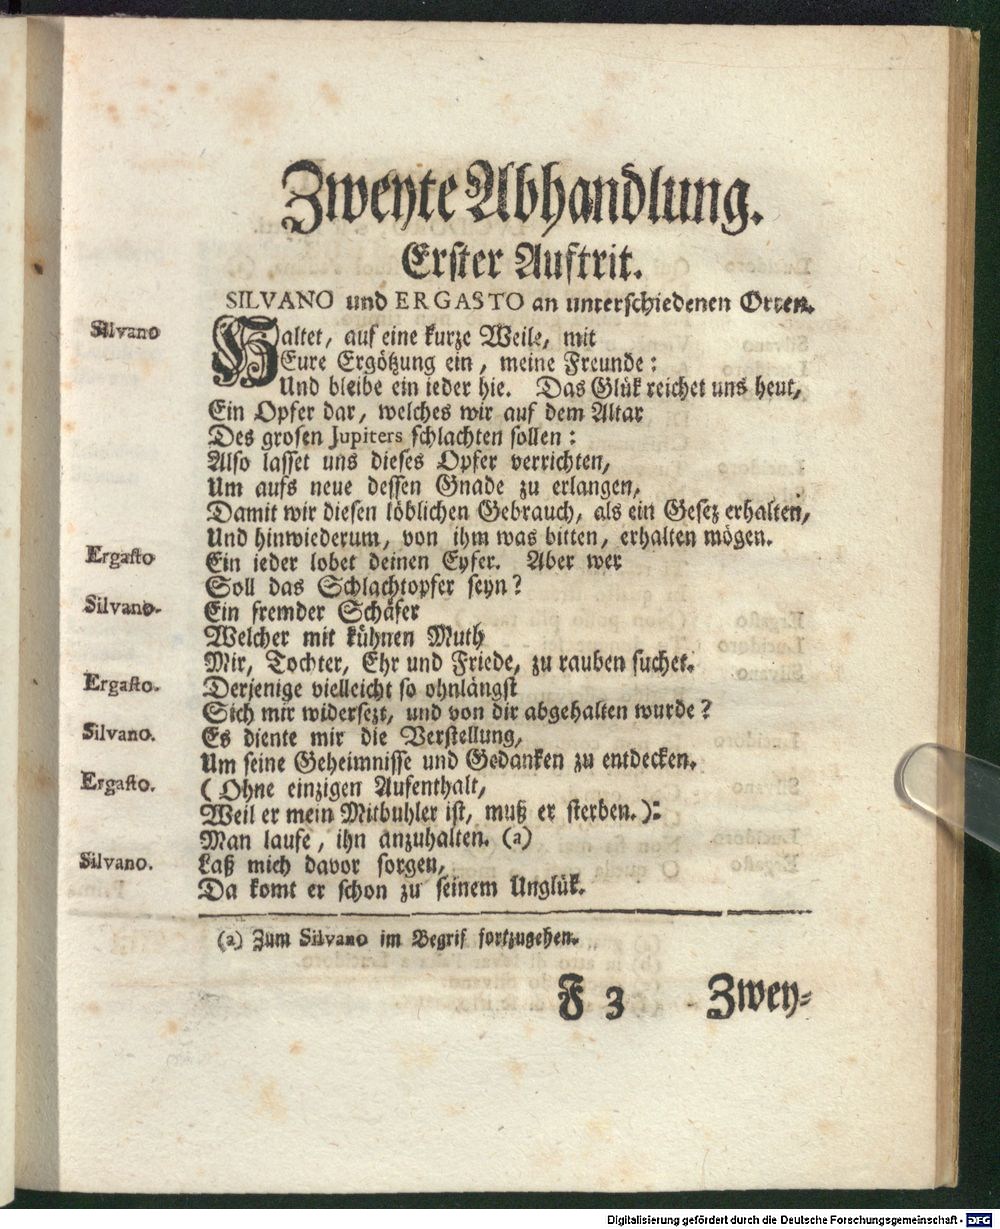 Zweyte Abhandlung.
Erster Auftrit.
SILVANO und ERGASTO an unterschiedenen Orten.
Silvano Haltet, auf eine kurze Weile, mit
Eure Ergötzung ein, meine Freunde:
Und bleibe ein ieder hie. Das Glük reichet uns heut,
Ein Opfer dar, welches wir auf dem Altar
Des grosen Jupiters schlachten sollen:
Also lasset uns dieses Opfer verrichten,
Um aufs neue dessen Gnade zu erlangen,
Damit wir diesen löblichen Gebrauch, als ein Gesez erhalten,
Und hinwiederum, von ihm was bitten, erhalten mögen.
Ergasto Ein ieder lobet deinen Eyfer. Aber wer
Soll das Schlachtopfer seyn?
Silvano. Ein fremder Schäfer
Welcher mit kühnen Muth
Mir, Tochter, Ehr und Friede, zu rauben suchet.
Ergasto. Derjenige vielleicht so ohnlängst
Sich mir widersezt, und von dir abgehalten wurde?
Silvano. Es diente mir die Verstellung,
Um seine Geheimnisse und Gedanken zu entdecken.
Ergasto. (Ohne einzigen Aufenthalt,
Weil er mein Mitbuhler ist, muß er sterben.):
Man laufe, ihn anzuhalten. (a)
Silvano. Laß mich davor sorgen,
Da komt er schon zu seinem Unglük.
(a) Zum Silvano im Begrif fortzugehen.
F 3 Zwey=
Digitalisierung gefördert durch die Deutsche Forschungsgemeinschaft - DFG